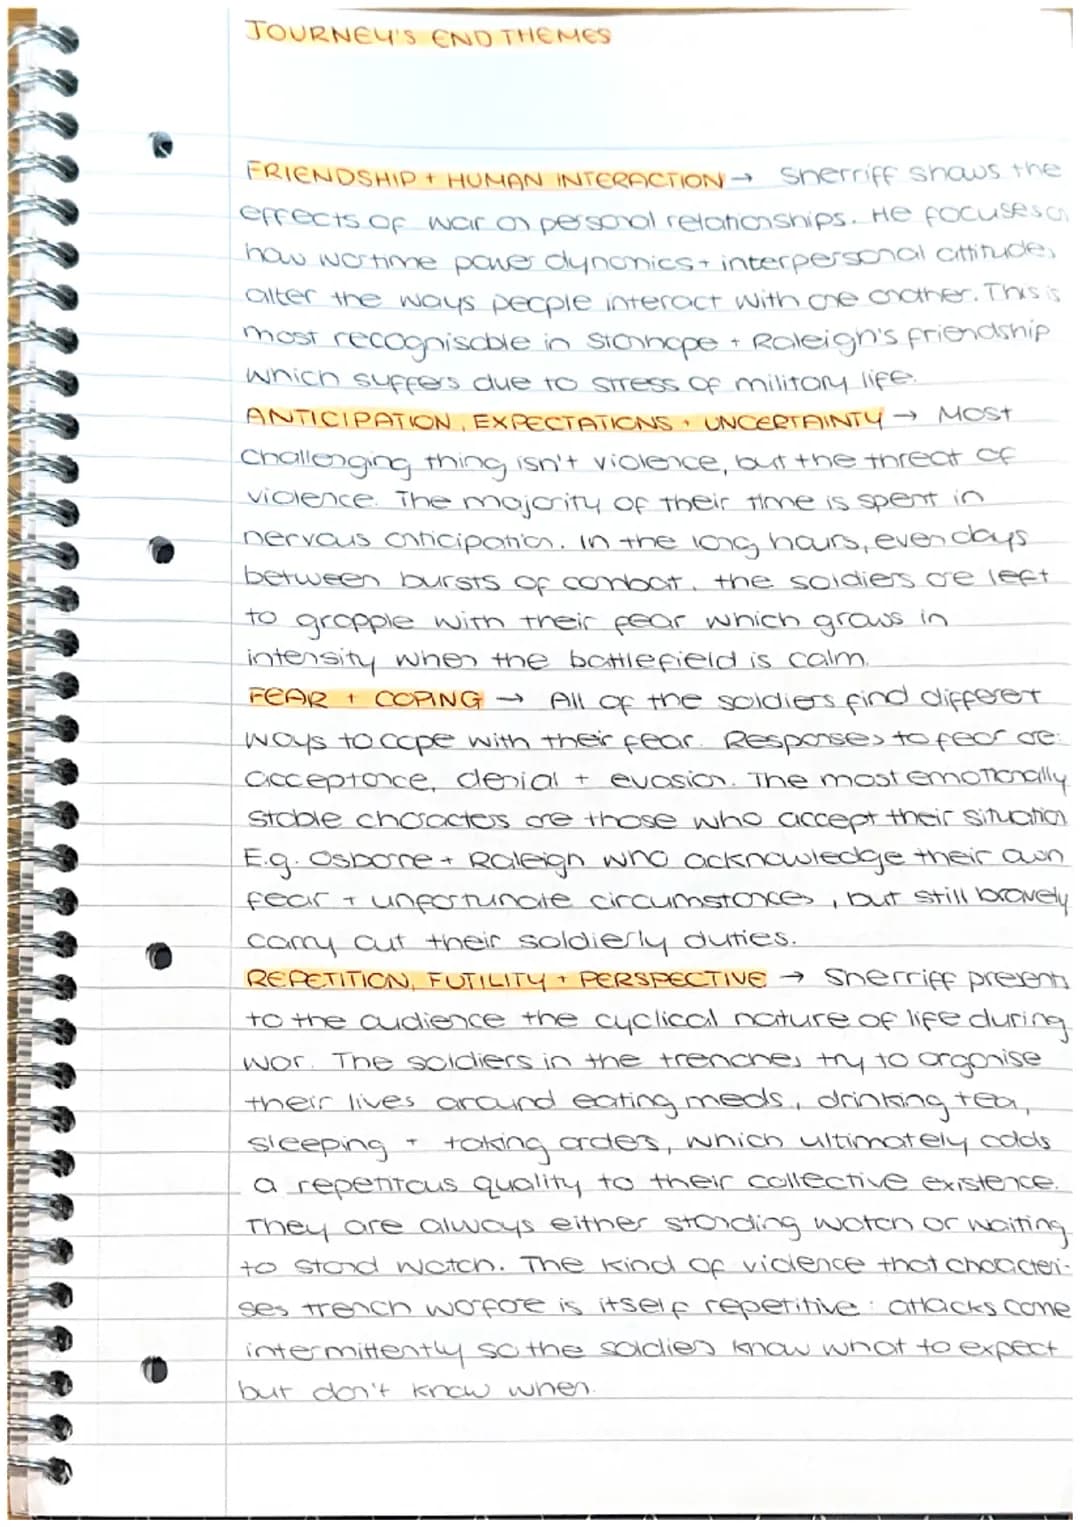 JOURNEY'S END THEMES
FRIENDSHIP + HUMAN INTERACTION → Sherriff shows the
effects of war on personal relationships. He focuses on
how wartime power dynamics + interpersonal attitudes
alter the ways people interact with one another. This is
most recognisable in Stanhope + Raleigh's friendship
which suffers due to stress of military life.
ANTICIPATION, EXPECTATIONS + UNCERTAINTY → Most
challenging thing isn't violence, but the threat of
violence. The majority of their time is spent in
nervous anticipation. In the long hours, even days
between bursts of combat, the soldiers are left
to grapple with their fear which grows in
intensity when the battlefield is calm.
FEAR + COPING → All of the soldiers find different
ways to cope with their fear. Responses to fear are:
acceptance, denial + evasion. The most emotionally
stable characters are those who accept their situation
E.g. Osborne + Raleigh who acknowledge their own
fear + unfortunate circumstances, but still bravely
carry out their soldierly duties.
REPETITION, FUTILITY + PERSPECTIVE → Sherriff presents
to the audience the cyclical nature of life during
war. The soldiers in the trenches try to organise
their lives around eating meals, drinking tea,
sleeping + taking orders, which ultimately adds
a repetitous quality to their collective existence.
They are always either standing watch or waiting
to stand watch. The kind of violence that characteri-
ses trench warfare is itself repetitive: attacks come
intermittently so the soldiers know what to expect
but don't know when.